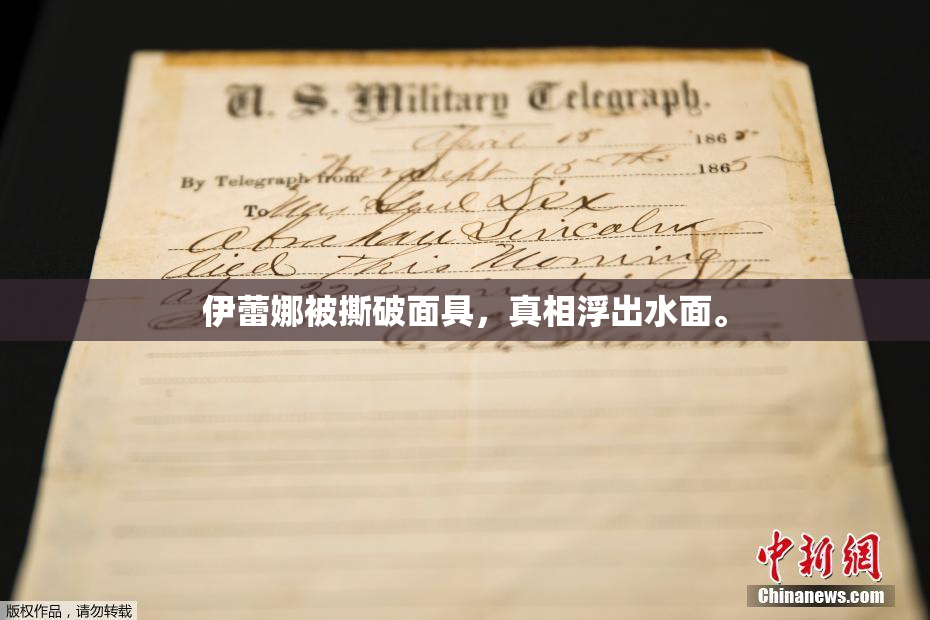 U. S. Military Telegraph.
April 15 1865-
By Telegraph from War Dept 15th 1865
To Maj Genl Dix
Abraham Lincoln
died This Morning
at 22 minutes after
伊蕾娜被撕破面具，真相浮出水面。
中新网
Chinanews.com
版权作品，请勿转载